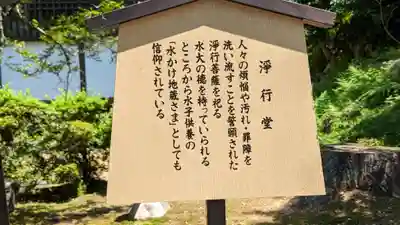 淨行堂
人々の煩悩や汚れ・罪障を
洗い流すことを誓願された
淨行菩薩を祀る
水大の徳を持っていられる
ところから水子供養の
「水かけ地蔵さま」としても
信仰されている